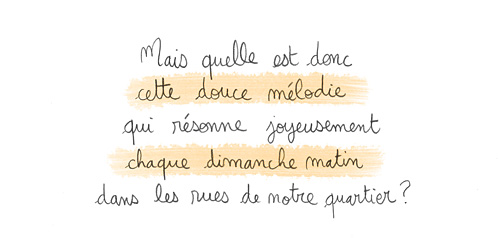 Mais quelle est donc
cette douce mélodie
qui résonne joyeusement
chaque dimanche matin
dans les rues de notre quartier ?